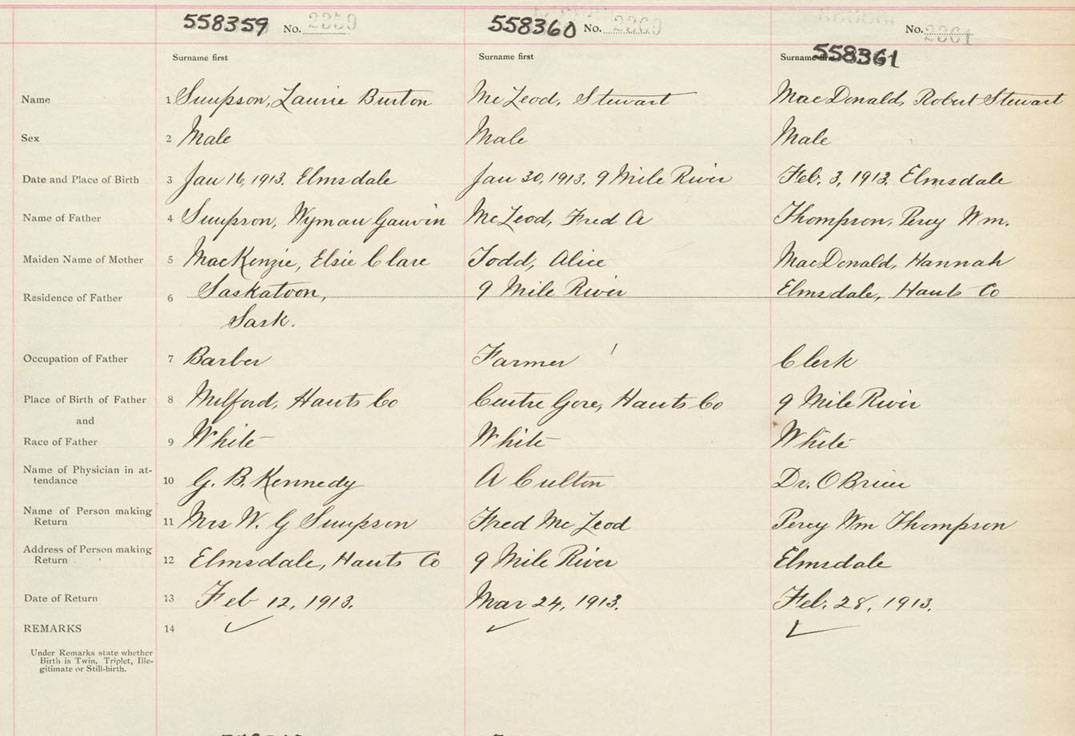 558359 No. 2359 558360 No. 2360 No. 2361
558361
Surname first Surname first Surname first
Name 1 Simpson, Laurie Burton McLeod, Stewart MacDonald, Robert Stewart
Sex 2 Male Male Male
Date and Place of Birth 3 Jan 16, 1913. Elmsdale Jan 30, 1913. 9 Mile River Feb. 3, 1913. Elmsdale
Name of Father 4 Simpson, Wyman Gauvin McLeod, Fred A Thompson, Percy Wm.
Maiden Name of Mother 5 MacKenzie, Elsie Clare Todd, Alice MacDonald, Hannah
Residence of Father 6 Saskatoon, 9 Mile River Elmsdale, Hants Co
Sask.
Occupation of Father 7 Barber Farmer Clerk
Place of Birth of Father 8 Milford, Hants Co Centre Gore, Hants Co 9 Mile River
and
Race of Father 9 White White White
Name of Physician in at-
tendance 10 G. B. Kennedy A Culton Dr. O'Brien
Name of Person making
Return 11 Mrs W. G Simpson Fred McLeod Percy Wm Thompson
Address of Person making
Return 12 Elmsdale, Hants Co 9 Mile River Elmsdale
Date of Return 13 Feb 12, 1913. Mar 24, 1913. Feb. 28, 1913.
REMARKS 14
Under Remarks state whether
Birth is Twin, Triplet, Ille-
gitimate or Still-birth.